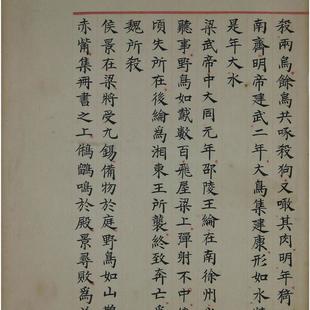 殺兩烏餘烏共啄殺狗又噉其肉明年猗
南齊明帝建武二年大鳥集建康形如水
是年大水
梁武帝中大同元年邵陵王綸在南徐州
聽事野鳥如䳒數百飛屋梁上彈射不中
頃失所在後綸為湘東王所襲終致奔亡
魏所殺
侯景在梁將受九錫備物於庭野鳥如山鵲
赤觜集冊書之上鵂鶹鳴於殿景尋敗為